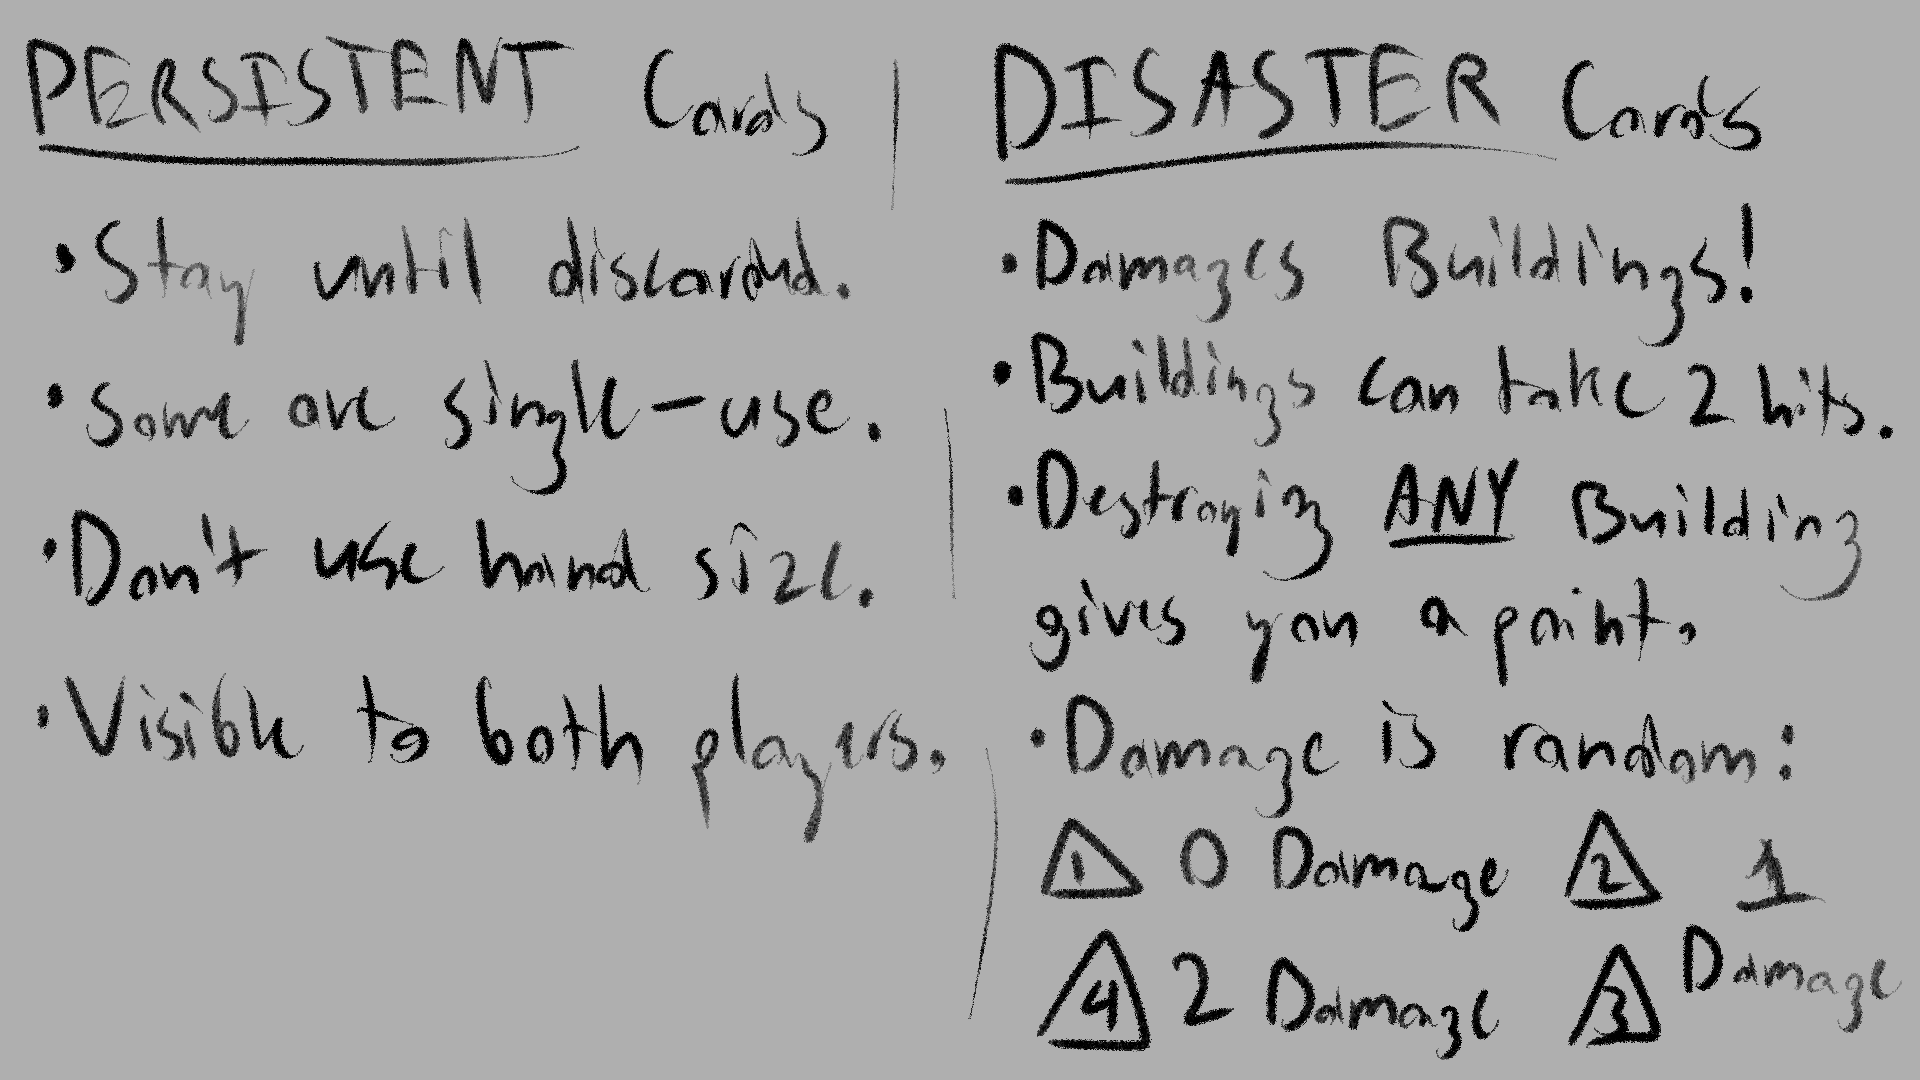 PERSISTENT Cards
• Stay until discarded.
• Some are single-use.
• Don't use hand size.
• Visible to both players.
DISASTER Cards
• Damages Buildings!
• Buildings can take 2 hits.
• Destroying ANY Building
gives you a point.
• Damage is random:
1 0 Damage 2 1
4 2 Damage 3 Damage